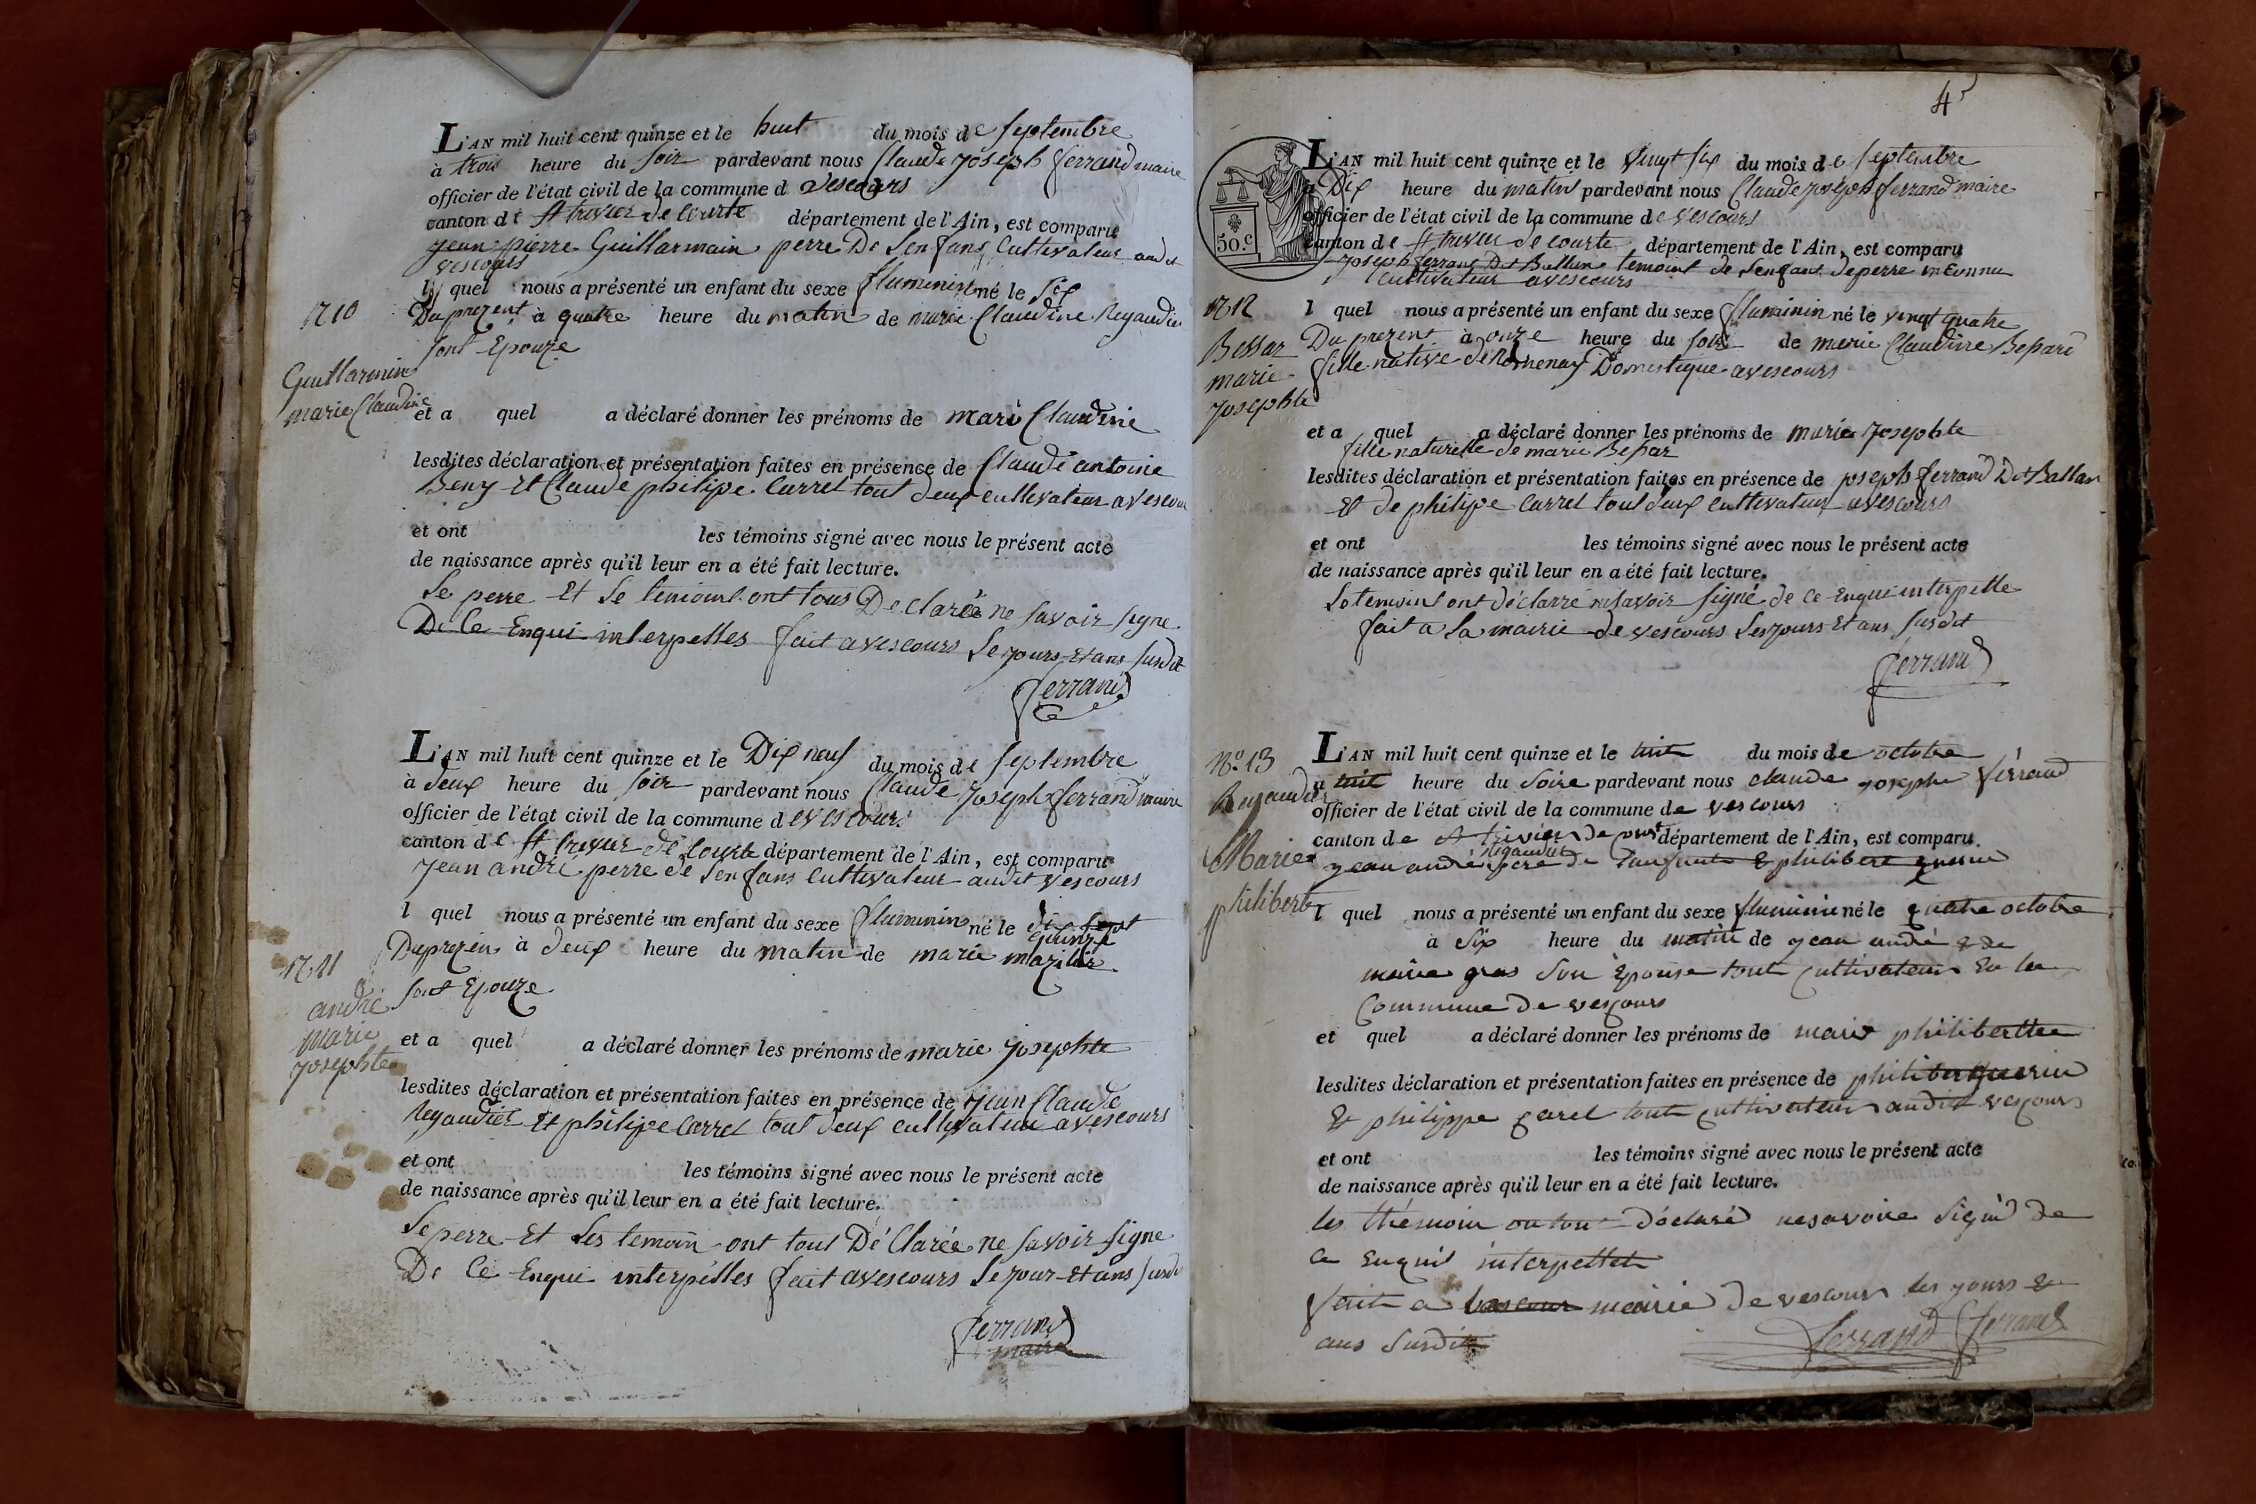 L'AN mil huit cent quinze et le huit du mois de septembre
à trois heure du soir pardevant nous Claude joseph ferrand maire
officier de l'état civil de la commune d vescours
canton de st trivier de courte département de l'Ain, est comparu
jean pierre Guillarmain perre De Lenfans Cultivateur audit
vescours
l quel nous a présenté un enfant du sexe fluminin né le Six
Du prezent à quatre heure du matin de marie Claudine Regaudie
sont Epouze
n 10
Guillarmin
marie Claudine
et a quel a déclaré donner les prénoms de mari Claudine
lesdites déclaration et présentation faites en présence de Claude antoine
Beny Et Claude philipe Carrel tout deux cultivateur a vescour
et ont les témoins signé avec nous le présent acte
de naissance après qu'il leur en a été fait lecture.
Le perre Et Le temoint ont tous Declarée ne savoir signe
De Ce Enqui interpelles fait a vescours Le jours Et ans susdit
ferrand
L'AN mil huit cent quinze et le Dix neuf du mois de septembre
à deux heure du soir pardevant nous Claude Joseph ferrand maire
officier de l'état civil de la commune de vescours
canton de st trivier de Courte département de l'Ain, est comparu
jean andré perre de Lenfans Cultivateur audit vescours
l quel nous a présenté un enfant du sexe fluminin né le di sept
quinze
Duprezen à deux heure du matin de marie
sont Epouze
n 11
andré
marie
josephte
et a quel a déclaré donner les prénoms de marie josephte
lesdites déclaration et présentation faites en présence de jean Claude
Regaudier Et philipe Carrel tout deux cultivateur a vescours
et ont les témoins signé avec nous le présent acte
de naissance après qu'il leur en a été fait lecture.
Le perre Et Les temoin ont tout Dé Clarée ne savoir signe
De Ce Enqui interpélles fait a vescours Le jour Et ans susdi
ferrand
maire
4
L'AN mil huit cent quinze et le vingt six du mois de septembre
à Dix heure du matin pardevant nous Claude joseph ferrand maire
officier de l'état civil de la commune de vescours
50.c
canton de st trivier de courte département de l'Ain, est comparu
joseph ferrand Dit Ballan temoint de Lenfant deperre inconnu
Cultivateur a vescours
n 12
Bessar
marie
josephte
l quel nous a présenté un enfant du sexe fluminin né le vingt quatre
Du prezent à onze heure du soir de marie Claudine Bepard
fille native de Romenay Domestique a vescours
et a quel a déclaré donner les prénoms de marie josephte
fille naturelle de marie Bepar
lesdites déclaration et présentation faites en présence de joseph ferrand Dit Ballan
Et de philipe Carrel tout deux cultivateur a vescours
et ont les témoins signé avec nous le présent acte
de naissance après qu'il leur en a été fait lecture.
Lo temoint ont déclarré nesavoir signé de Ce Enqui interpelle
fait a La mairie de vescours Les jours Et ans susdit
ferrand
N.º 13
Regaudier
Marie
philiberte
L'AN mil huit cent quinze et le huit du mois de octobre
a huit heure du soire pardevant nous claude josephe ferrand
officier de l'état civil de la commune de vescours
canton de St trivier de court département de l'Ain, est comparu
Regaudier
jean andré pere de Lanfant & philibert guerin
l quel nous a présenté un enfant du sexe fluminin né le quatre octobre
à six heure du matin de jean andré & de
marie gras son Epouse tout cultivateur En la
Commune de vescours
et quel a déclaré donner les prénoms de marie philiberthe
lesdites déclaration et présentation faites en présence de philibert guerin
& philippe carel tout cultivateurs audit vescours
et ont les témoins signé avec nous le présent acte
de naissance après qu'il leur en a été fait lecture.
les thémoin on tout déclaré nesavoire signé de
ce Enquis interpellet
fait a mairie de vescours les jours &
ans susdit
ferrand ferrand